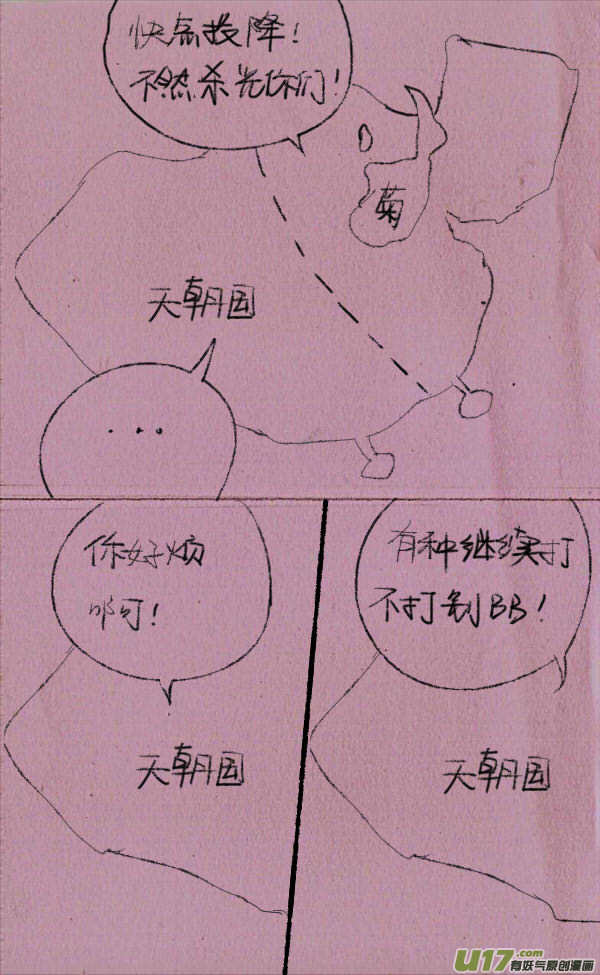 快点投降！
不然杀光你们！
菊
天朝国
...
你好烦
啊！
天朝国
有种继续打
不打别BB！
天朝国
U17.com
有妖气原创漫画